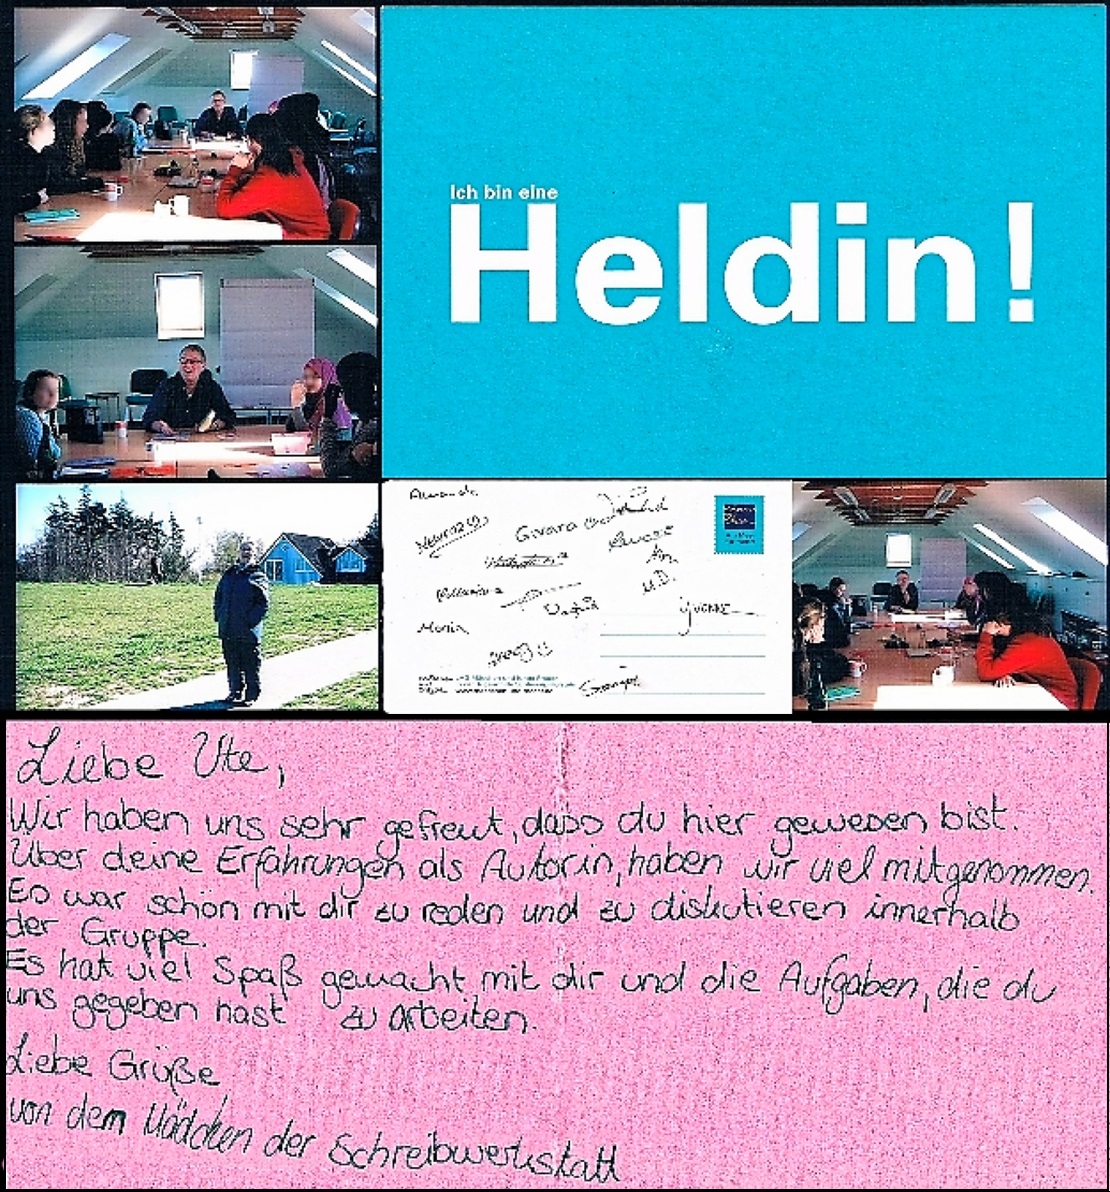 Ich bin eine
Heldin!
Givara
Maria
YVONNE
Liebe Ute,
Wir haben uns sehr gefreut, dass du hier gewesen bist.
Über deine Erfahrungen als Autorin, haben wir viel mitgenommen.
Es war schön mit dir zu reden und zu diskutieren innerhalb
der Gruppe.
Es hat viel Spaß gemacht mit dir und die Aufgaben, die du
uns gegeben hast zu arbeiten.
Liebe Grüße
von dem Mädchen der Schreibwerkstatt